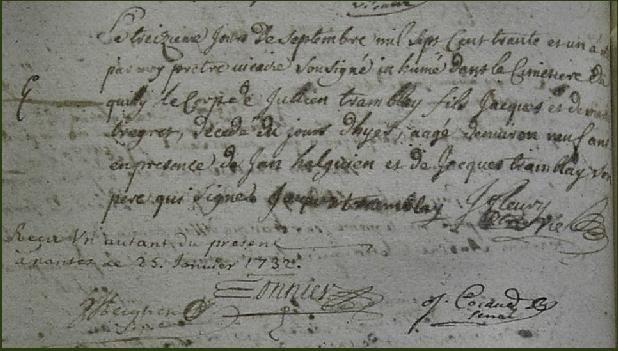 Le treizieme Jour de septembre mil sept cent trante et un a été
par moy pretre vicaire sousigné inhumé dans le Cimetiere de
quilly le corps de Jullien tramblay fils Jacques et de
tregret, decede du jour dhyer, aagé denviron neuf ans
en presence de Jan halguien et de Jacques tramblay son
pere qui signe Jacques tramblay J fleury
Recu Un autant du present
a nantes ce 25. Janvier 1732.